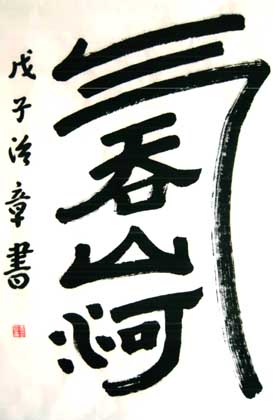 气吞山河
戊子治章書